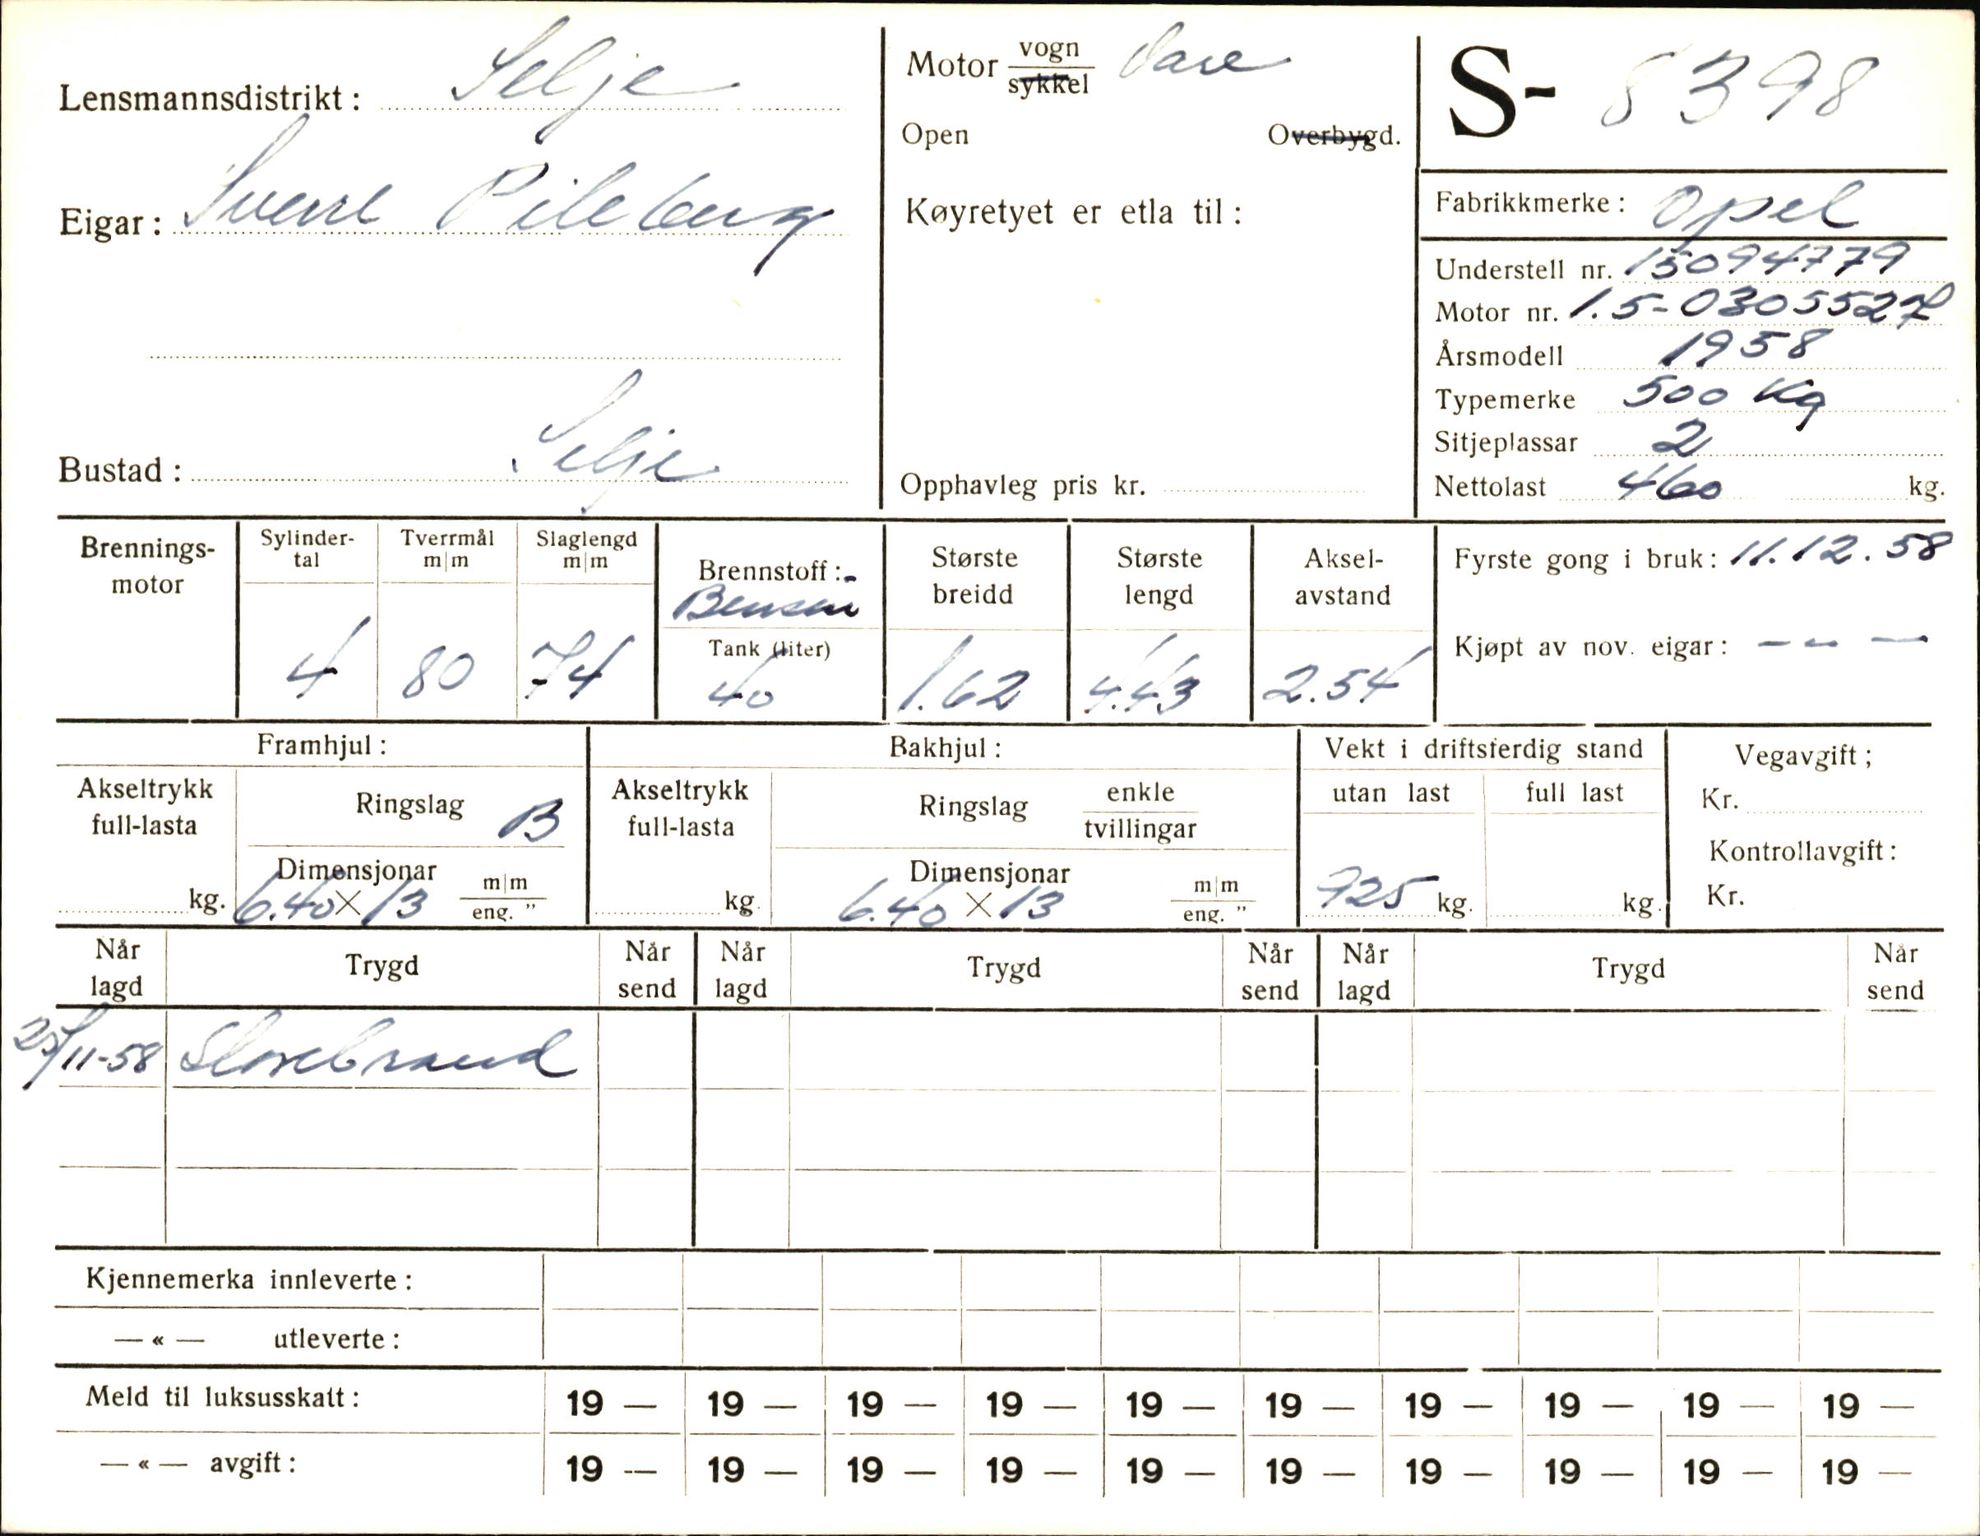 Lensmannsdistrikt: Selje
Eigar: Sverre Pileberg
Bustad: Selje
Motor vogn Vare
sykkel
Open Overbygd.
Køyretyet er etla til:
Opphavleg pris kr.
S- 8398
Fabrikkmerke: Opel
Understell nr. 15094779
Motor nr. 1.5-0305527
Årsmodell 1958
Typemerke 500 Kg
Sitjeplassar 2
Nettolast 460 kg.
Brennings-
motor
Sylinder-
tal
4
Tverrmål
m|m
80
Slaglengd
m|m
74
Brennstoff:
Bensin
Tank (liter)
40
Største
breidd
1.62
Største
lengd
4.43
Aksel-
avstand
2.54
Fyrste gong i bruk: 11.12.58
Kjøpt av nov. eigar: - - -
Framhjul:
Akseltrykk
full-lasta
kg.
Ringslag B
Dimensjonar m|m
6.40 X 13 eng. "
Bakhjul:
Akseltrykk
full-lasta
kg.
Ringslag enkle
tvillingar
Dimensjonar m|m
6.40 X 13 eng. "
Vekt i driftsferdig stand
utan last full last
925 kg. kg.
Vegavgift;
Kr.
Kontrollavgift:
Kr.
Når lagd Trygd Når send Når lagd Trygd Når send Når lagd Trygd Når send
25/11-58 Storebrand
Kjennemerka innleverte:
— « — utleverte:
Meld til luksusskatt: 19 — 19 — 19 — 19 — 19 — 19 — 19 — 19 — 19 — 19 —
— « — avgift: 19 — 19 — 19 — 19 — 19 — 19 — 19 — 19 — 19 — 19 —